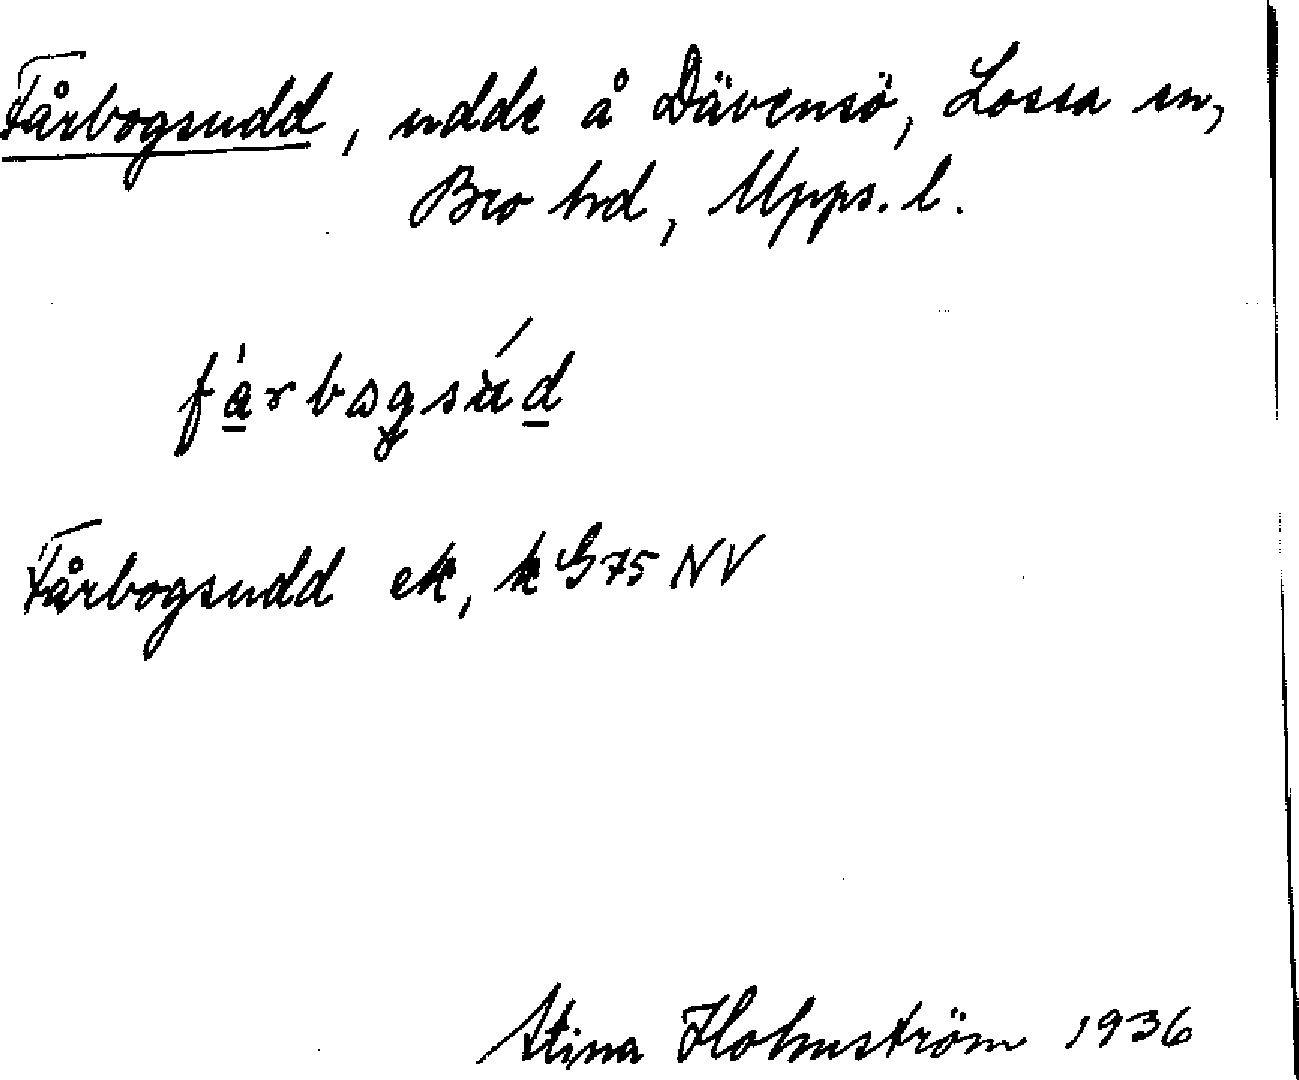 Fårbogsudd, udde å Dävensö, Lossa sn,
Bro hd, Upps. l.
Fårbogsudd ek, k G 75 NV
Stina Holmström 1936